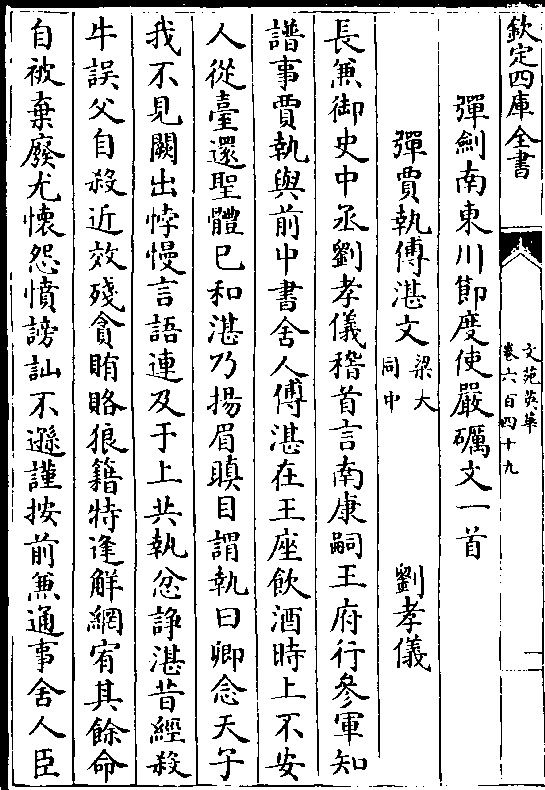 欽定四庫全書
文苑英華
卷六百四十九
一
彈劍南東川節度使嚴礪文一首
彈賈執傅湛文 梁大同中 劉孝儀
長兼御史中丞劉孝儀稽首言南康嗣王府行參軍知
譜事賈執與前中書舍人傅湛在王座飲酒時上不安
人從臺還聖體已和湛乃揚眉瞋目謂執曰卿念天子
我不見闕出悖慢言語連及于上共執忿諍湛昔經殺
牛誤父自殺近效殘貪賄賂狼籍特逢解網宥其餘命
自被棄廢尤懷怨憤謗訕不遜謹按前兼通事舍人臣